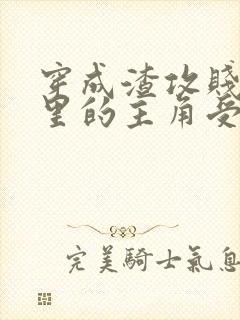 穿成渣攻賤
里的主角受
完美騎士氣息